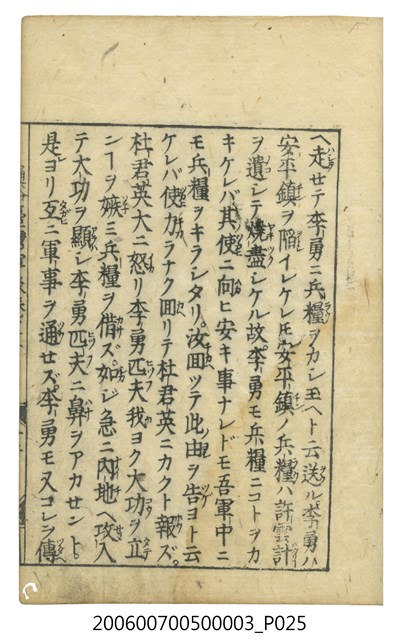 ヘ走セテ李勇ニ兵糧ヲカシ玉ヘト云送ル李勇ハ
安平鎮ヲ陥イレケレ𪜈安平鎮ノ兵糧ハ許雲計
ヲ遺シテ燒盡シケル故李勇モ兵糧ニコトヲカ
キケレバ其使ニ向ヒ安キ事ナレドモ吾軍中ニ
モ兵糧ヲキラシタリ。汝囬ツテ此由ヲ告ヨト云
ケレバ使力ラナク囬リテ杜君英ニカクト報ズ。
杜君英大ニ怒リ李勇匹夫我ヨク大功ヲ立
ンヿヲ嫉ミ兵糧ヲ借ズ。如シ急ニ内地ヘ攻入
テ大功ヲ顯シ李勇匹夫ニ鼻ヲアカセント。
是ヨリ互ニ軍事ヲ通セズ。李勇モ又コレヲ傳
200600700500003_P025